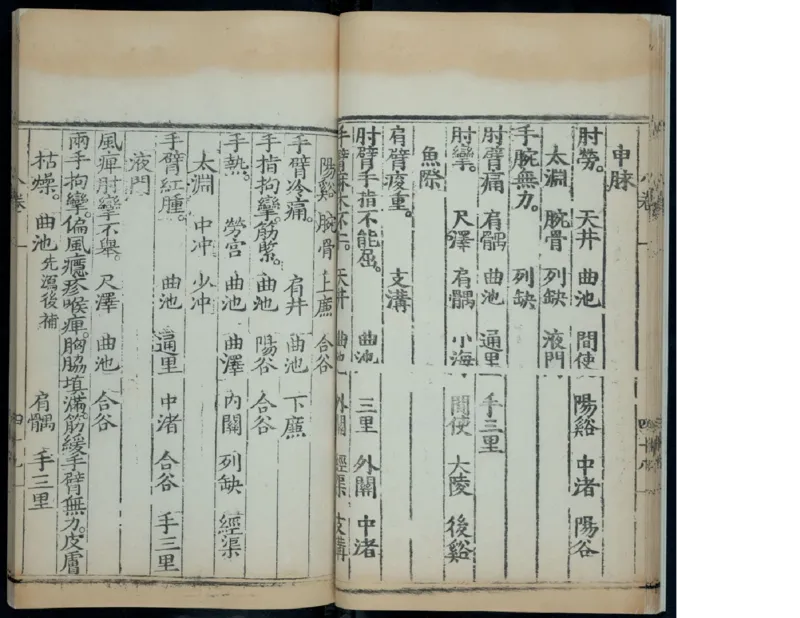 申脉
肘勞。 天井 曲池 間使 陽谿 中渚 陽谷
太淵 腕骨 列缺 液門
手腕無力。 列缺
肘臂痛 肩髃 曲池 通里 手三里
肘攣。 尺澤 肩髃 小海 間使 大陵 後谿
魚際
肩臂痠重。 支溝
肘臂手指不能屈。 曲池 三里 外關 中渚
手臂麻木不仁。 天井 曲池 外關 經渠 支溝
陽谿 腕骨 上廉 合谷
手臂冷痛。 肩井 曲池 下廉
手指拘攣。筋緊。 曲池 陽谷 合谷
手熱。 勞宮 曲池 曲澤 內關 列缺 經渠
太淵 中冲 少冲
手臂紅腫。 曲池 通里 中渚 合谷 手三里
液門
風痺肘攣不舉。 尺澤 曲池 合谷
兩手拘攣。偏風癮疹喉痺。胸脇填滿。筋緩手臂無力。皮膚
枯燥。 曲池 先瀉後補 肩髃 手三里